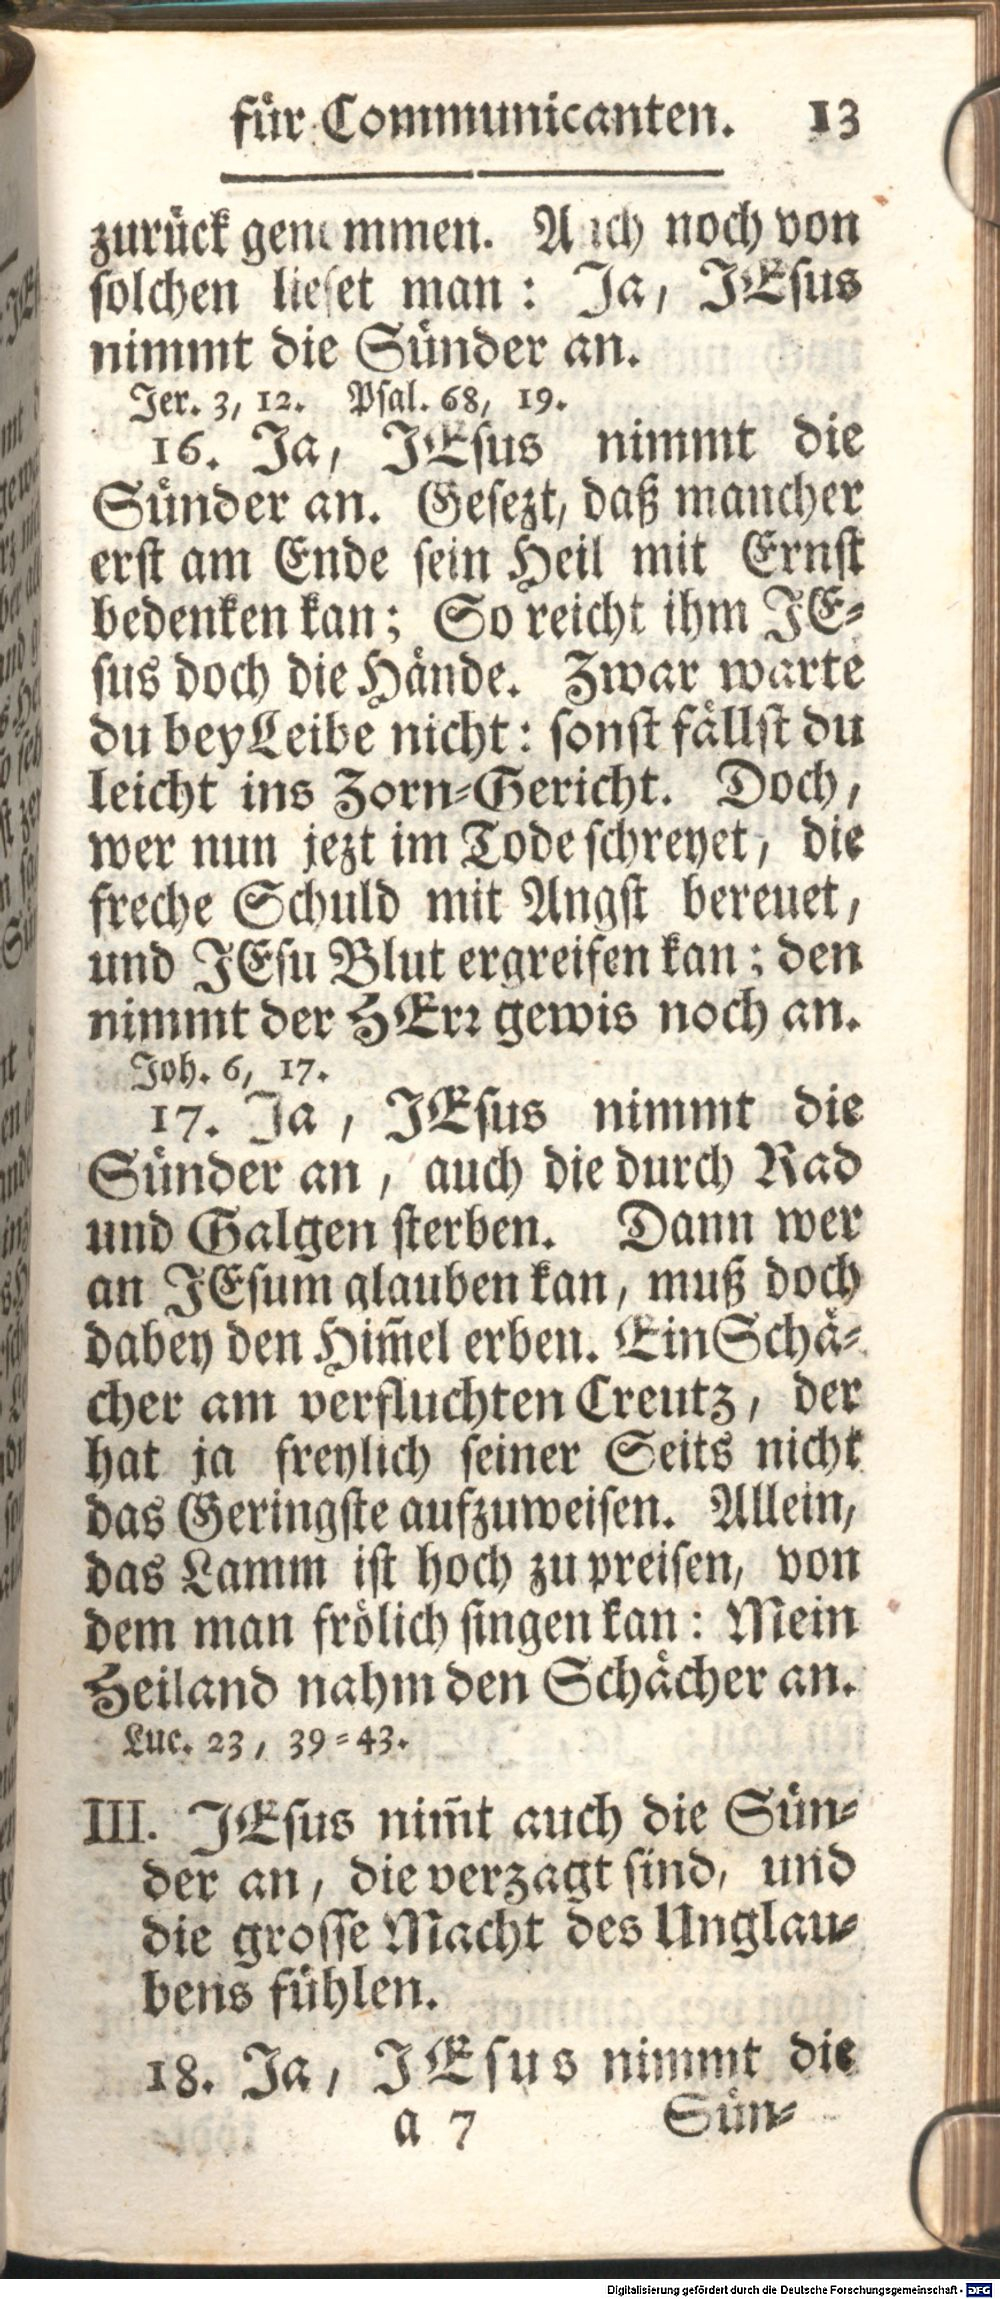 für Communicanten. 13
zurück genommen. Auch noch von
solchen lieset man: Ja, JEsus
nimmt die Sünder an.
Jer. 3, 12. Psal. 68, 19.
16. Ja, JEsus nimmt die
Sünder an. Gesezt, daß mancher
erst am Ende sein Heil mit Ernst
bedenken kan; So reicht ihm JE-
sus doch die Hände. Zwar warte
du bey Leibe nicht: sonst fällst du
leicht ins Zorn-Gericht. Doch,
wer nun jezt im Tode schreyet, die
freche Schuld mit Angst bereuet,
und JEsu Blut ergreifen kan; den
nimmt der HErr gewis noch an.
Joh. 6, 17.
17. Ja, JEsus nimmt die
Sünder an, auch die durch Rad
und Galgen sterben. Dann wer
an JEsum glauben kan, muß doch
dabey den Him̃el erben. Ein Schä-
cher am verfluchten Creutz, der
hat ja freylich seiner Seits nicht
das Geringste aufzuweisen. Allein,
das Lamm ist hoch zu preisen, von
dem man frölich singen kan: Mein
Heiland nahm den Schächer an.
Luc. 23, 39-43.
III. JEsus nim̃t auch die Sün-
der an, die verzagt sind, und
die grosse Macht des Unglau-
bens fühlen.
18. Ja, JEsus nimmt die
a 7 Sün-
Digitalisierung gefördert durch die Deutsche Forschungsgemeinschaft - DFG